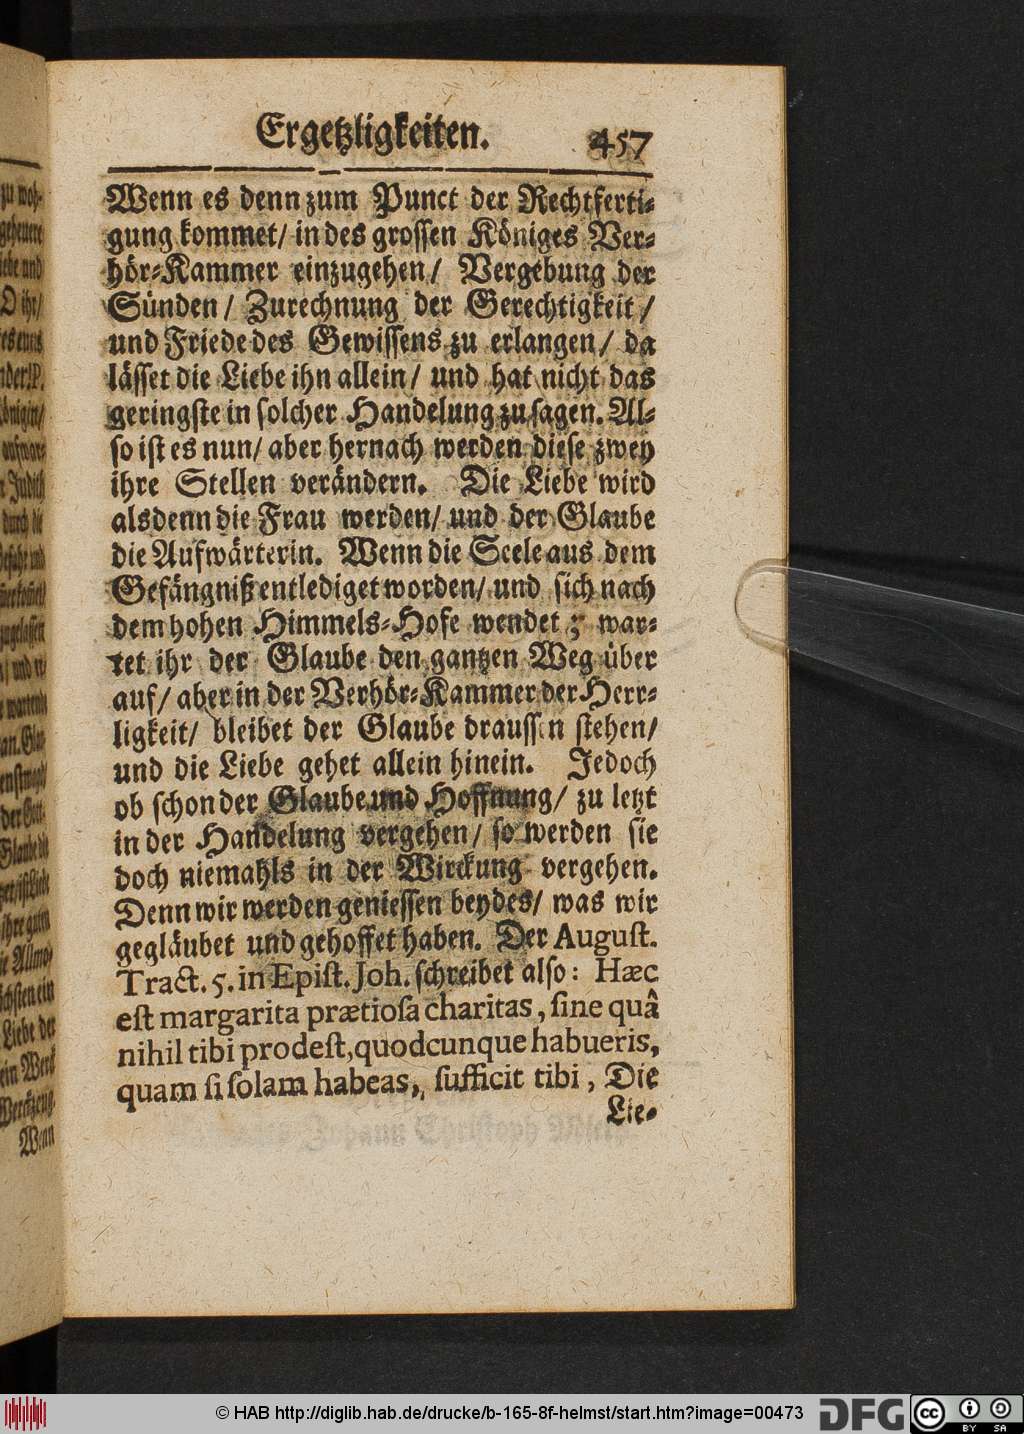 Ergetzligkeiten. 457
Wenn es denn zum Punct der Rechtferti-
gung kommet/ in des grossen Königes Ver-
hör-Kammer einzugehen/ Vergebung der
Sünden/ Zurechnung der Gerechtigkeit/
und Friede des Gewissens zu erlangen/ da
lässet die Liebe ihn allein/ und hat nicht das
geringste in solcher Handelung zu sagen. Al-
so ist es nun/ aber hernach werden diese zwey
ihre Stellen verändern. Die Liebe wird
alsdenn die Frau werden/ und der Glaube
die Aufwärterin. Wenn die Seele aus dem
Gefängniß entlediget worden/ und sich nach
dem hohen Himmels-Hofe wendet; war-
tet ihr der Glaube den gantzen Weg über
auf/ aber in der Verhör-Kammer der Herr-
ligkeit/ bleibet der Glaube draussen stehen/
und die Liebe gehet allein hinein. Jedoch
ob schon der Glaube und Hoffnung/ zu letzt
in der Handelung vergehen/ so werden sie
doch niemahls in der Wirckung vergehen.
Denn wir werden geniessen beydes/ was wir
gegläubet und gehoffet haben. Der August.
Tract. 5. in Epist. Joh. schreibet also: Hæc
est margarita prætiosa charitas, sine quâ
nihil tibi prodest, quodcunque habueris,
quam si solam habeas, sufficit tibi, Die
Lie-
zu woh-
geheuere
iebe und
O ihr/
önigin/
Judith
durch die
der Gott-
Glaube die
ihre guten
ie Allmo-
ächsten ein
Liebe der
ein Werk
Werckzeug.
Wenn
© HAB http://diglib.hab.de/drucke/b-165-8f-helmst/start.htm?image=00473
DFG
cc BY SA